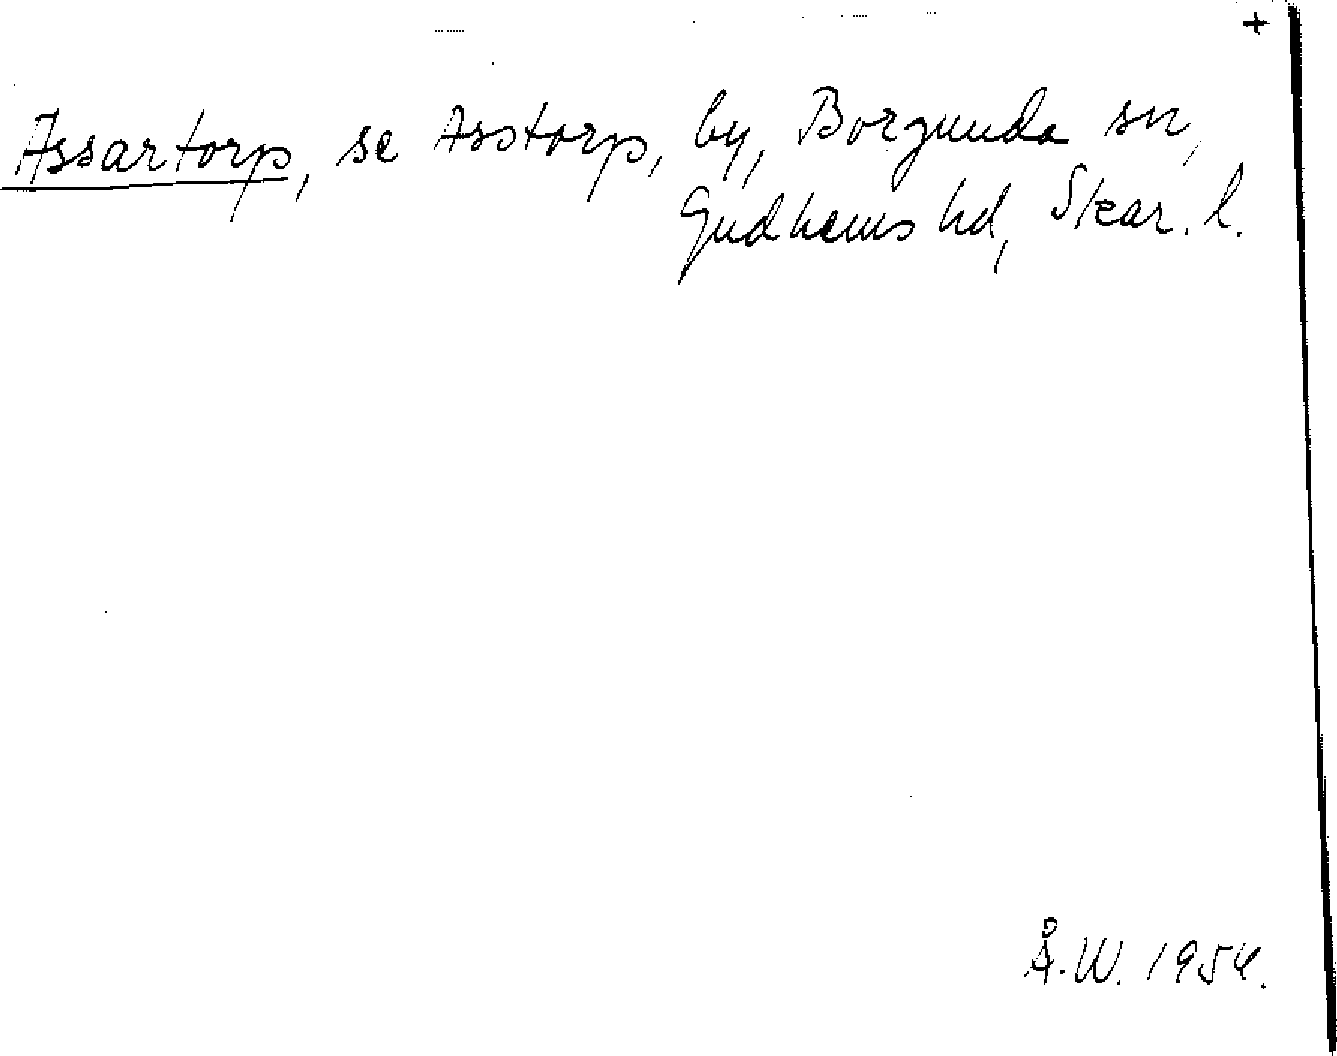 +
Assartorp, se Asstorp, by, Borgunda sn,
Gudhems hd, Skar. l.
Å.W. 1954.